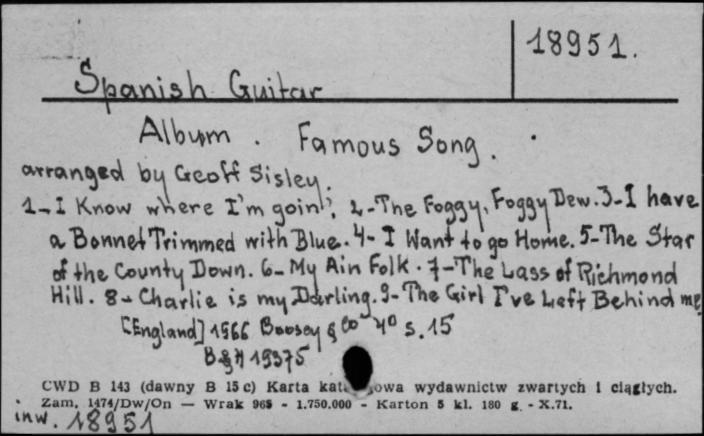 18951.
Spanish Guitar
Album. Famous Song.
arranged by Geoff Sisley.
1-I Know where I'm goin', 2-The Foggy, Foggy Dew. 3-I have
a Bonnet Trimmed with Blue. 4-I Want to go Home. 5-The Star
of the County Down. 6-My Ain Folk. 7-The Lass of Richmond
Hill. 8-Charlie is my Darling. 9-The Girl I've Left Behind me
[England] 1966 Boosey & Co 4o s. 15
B & H 19375
CWD B 143 (dawny B 15 c) Karta wydawnictw zwartych i ciągłych.
Zam. 1474/Dw/On — Wrak 965 - 1.750.000 - Karton 5 kl. 180 g. - X.71.
inw. 18951